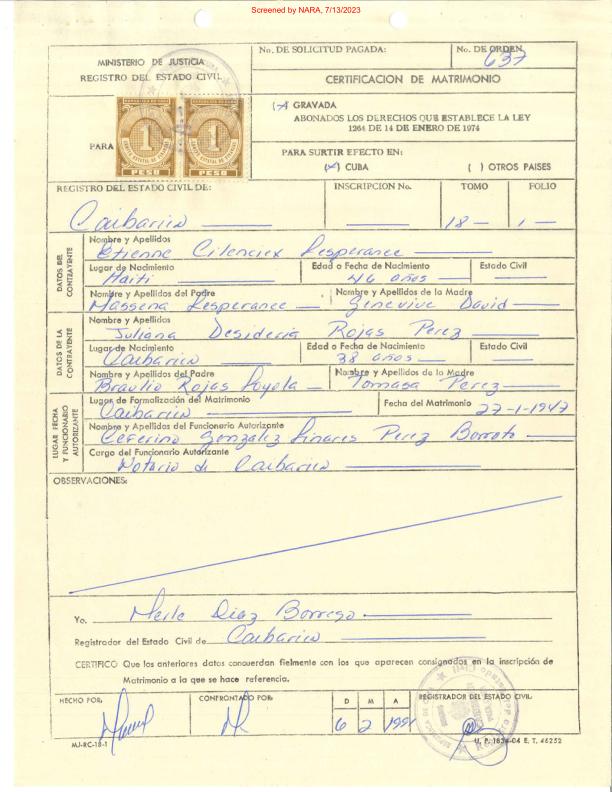 Screened by NARA, 7/13/2023
MINISTERIO DE JUSTICIA
REGISTRO DEL ESTADO CIVIL
No. DE SOLICITUD PAGADA:
No. DE ORDEN
637
CERTIFICACION DE MATRIMONIO
GRAVADA
ABONADOS LOS DERECHOS QUE ESTABLECE LA LEY
1264 DE 14 DE ENERO DE 1974
PARA
1
PESO
1
PESO
PARA SURTIR EFECTO EN:
CUBA
( ) OTROS PAISES
REGISTRO DEL ESTADO CIVIL DE:
INSCRIPCION No.
TOMO
FOLIO
Caibarien
18
1
DATOS DEL CONTRAYENTE
Nombre y Apellidos
Etienne Lesperance
Lugar de Nacimiento
Edad o Fecha de Nacimiento
Estado Civil
Haiti
46 años
Nombre y Apellidos del Padre
Nombre y Apellidos de la Madre
Massena Lesperance
Genevive David
DATOS DE LA CONTRAYENTE
Nombre y Apellidos
Juliana Desideria Rojas Perez
Lugar de Nacimiento
Edad o Fecha de Nacimiento
Estado Civil
Caibarien
38 años
Nombre y Apellidos del Padre
Nombre y Apellidos de la Madre
Braulio Rojas Loyola
Tomasa Perez
LUGAR FECHA Y FUNCIONARIO AUTORIZANTE
Lugar de Formalización del Matrimonio
Fecha del Matrimonio
Caibarien
27-1-1947
Nombre y Apellidos del Funcionario Autorizante
Ceferino Gonzalez Linares Perez Borroto
Cargo del Funcionario Autorizante
Notario de Caibarien
OBSERVACIONES:
Yo. Merle Diaz Borrego
Registrador del Estado Civil de Caibarien
CERTIFICO Que los anteriores datos concuerdan fielmente con los que aparecen consignados en la inscripción de
Matrimonio a la que se hace referencia.
HECHO POR:
CONFRONTADO POR:
D M A
REGISTRADOR DEL ESTADO CIVIL:
6 2 1991
MJ-RC-18-1
U. P. 1834-04 E. T. 46252